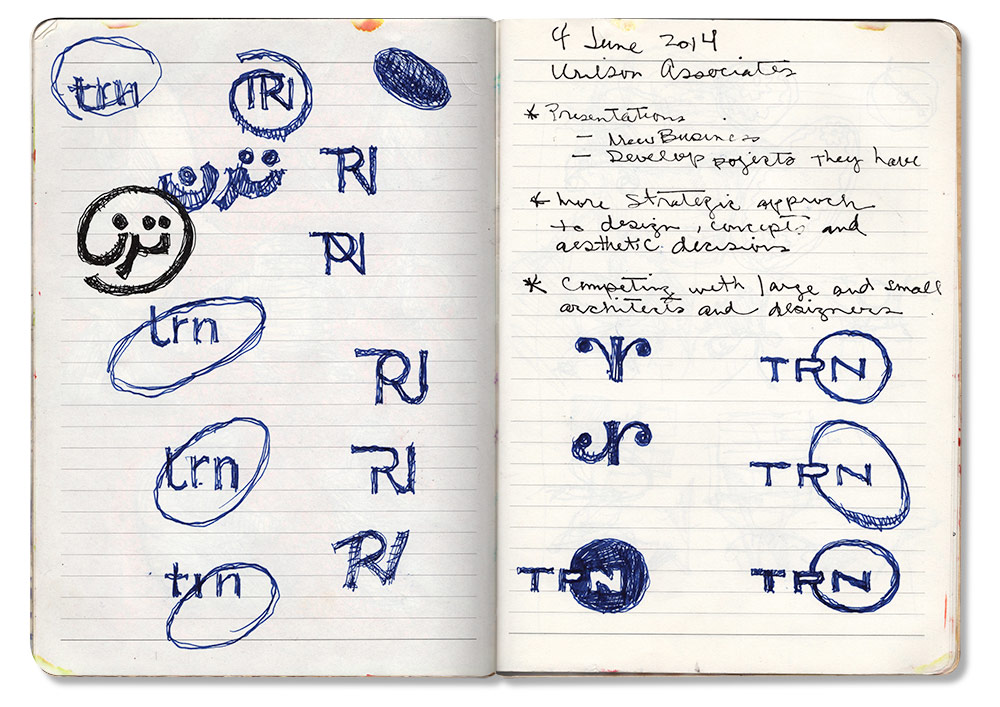 trn
TRN
ترن
TRN
ترن
TRN
trn
TRN
trn
TRN
TRN
trn
4 June 2014
Wilson Associates
* Presentations
– New Business
– Develop pojects they have
* More Strategic approch
to design, concepts and
aesthetic decisions
* Competing with large and small
architects and designers
TRN
TRN
TRN
TRN